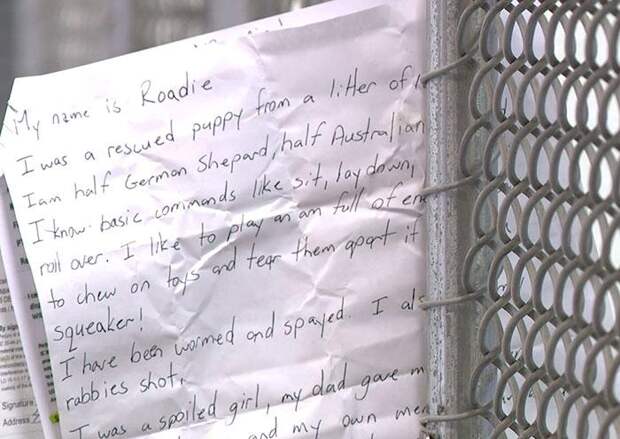 My name is Roadie
I was a rescued puppy from a litter of
I am half German Shepard, half Australian
I know basic commands like sit, lay down,
roll over. I like to play an am full of
to chew on toys and tear them apart it
squeaker!
I have been wormed and spayed. I
rabbies shot,
I was a spoiled girl, my dad gave
and my own
Signature
Address